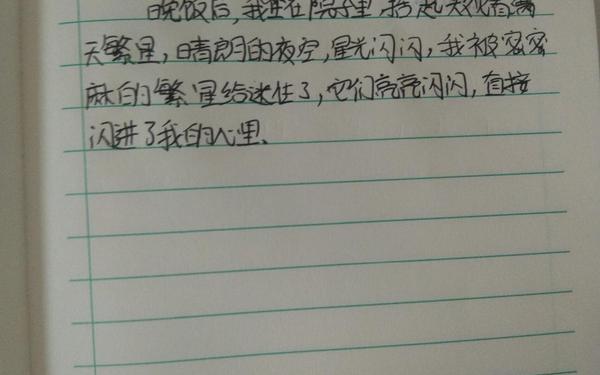 晚饭后,我坐在院子里,抬起头看着满
天繁星,晴朗的夜空,星光闪闪,我被密密
麻的繁星给迷住了,它们亮亮闪闪,直接
闪进了我的心里、